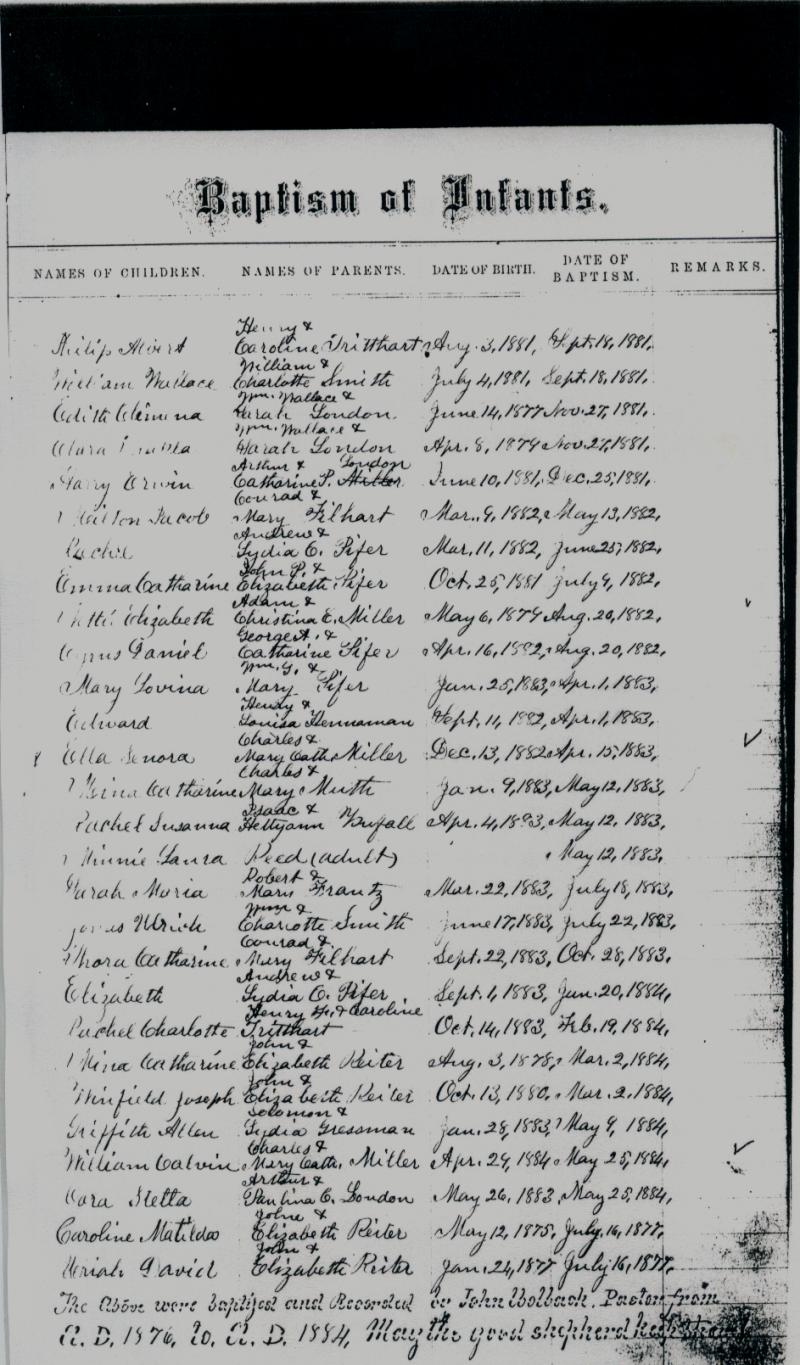 Baptism of Infants.
NAMES OF CHILDREN. NAMES OF PARENTS. DATE OF BIRTH. DATE OF BAPTISM. REMARKS.
Henry &
Philip Albert Caroline Tritthart Aug. 3, 1881, Sept. 18, 1881,
William &
William Wallace Charlotte Smith July 4, 1881, Sept. 18, 1881,
Wm. Wallace &
Edith Sarah London June 14, 1877 Nov. 27, 1881,
Wm. Wallace &
Clara Sarah London Apr. 8, 1879 Nov. 27, 1881,
Arthur & London
Harry Erwin Catharine P. Miller June 10, 1881, Dec. 25, 1881,
Conrad &
Milton Jacob Mary Filhart Mar. 9, 1882, May 13, 1882,
Andrew &
Lydia C. Fifer Mar. 11, 1882, June 25, 1882,
John P. &
Emma Catharine Elizabeth Fifer Oct. 25, 1881 July 9, 1882,
Adam &
Elizabeth Christina E. Miller May 6, 1879 Aug. 20, 1882,
George A. &
Cyrus Daniel Catharine Fifer Apr. 16, 1882, Aug. 20, 1882,
Wm. G. &
Mary Lovina Mary Fifer Jan. 25, 1883, Apr. 1, 1883,
Henry &
Edward Louisa Hennaman Sept. 11, 1882, Apr. 1, 1883,
Charles &
Ella Senora Mary Cath. Miller Dec. 13, 1882 Apr. 15, 1883,
Charles &
Catharine Mary Muth Jan. 9, 1883, May 12, 1883,
Isaac &
Rachel Susanna Hettyann Apr. 4, 1883, May 12, 1883,
Minnie Laura Reed (adult) May 12, 1883,
Robert &
Sarah Maria Mary Frantz Mar. 22, 1883, July 18, 1883,
Wm &
Ulrich Charlotte Smith June 17, 1883, July 22, 1883,
Conrad &
Catharine Mary Filhart Sept. 22, 1883, Oct. 28, 1883,
Andrew &
Elizabeth Lydia C. Fifer Sept. 1, 1883, Jan. 20, 1884,
Henry F. & Caroline
Rachel Charlotte Tritthart Oct. 14, 1883, Feb. 19, 1884,
John &
Mina Catharine Elizabeth Reiter Aug. 3, 1878, Mar. 2, 1884,
John &
Winfield Joseph Elizabeth Reiter Oct. 13, 1880, Mar. 2, 1884,
Solomon &
Griffith Allen Lydia Gressman Jan. 28, 1883, May 9, 1884,
Charles &
William Calvin Mary Cath. Miller Apr. 29, 1884 May 25, 1884,
Arthur &
Cora Stella Paulina C. London May 26, 1883, May 25, 1884,
John &
Caroline Matilda Elizabeth Reiter May 12, 1875, July 16, 1877,
John &
Uriah David Elizabeth Reiter Jan. 24, 1877 July 16, 1877,
The Above were baptized and Recorded by John Pastor from
A. D. 1876, to A. D. 1884, May the good shepherd keep